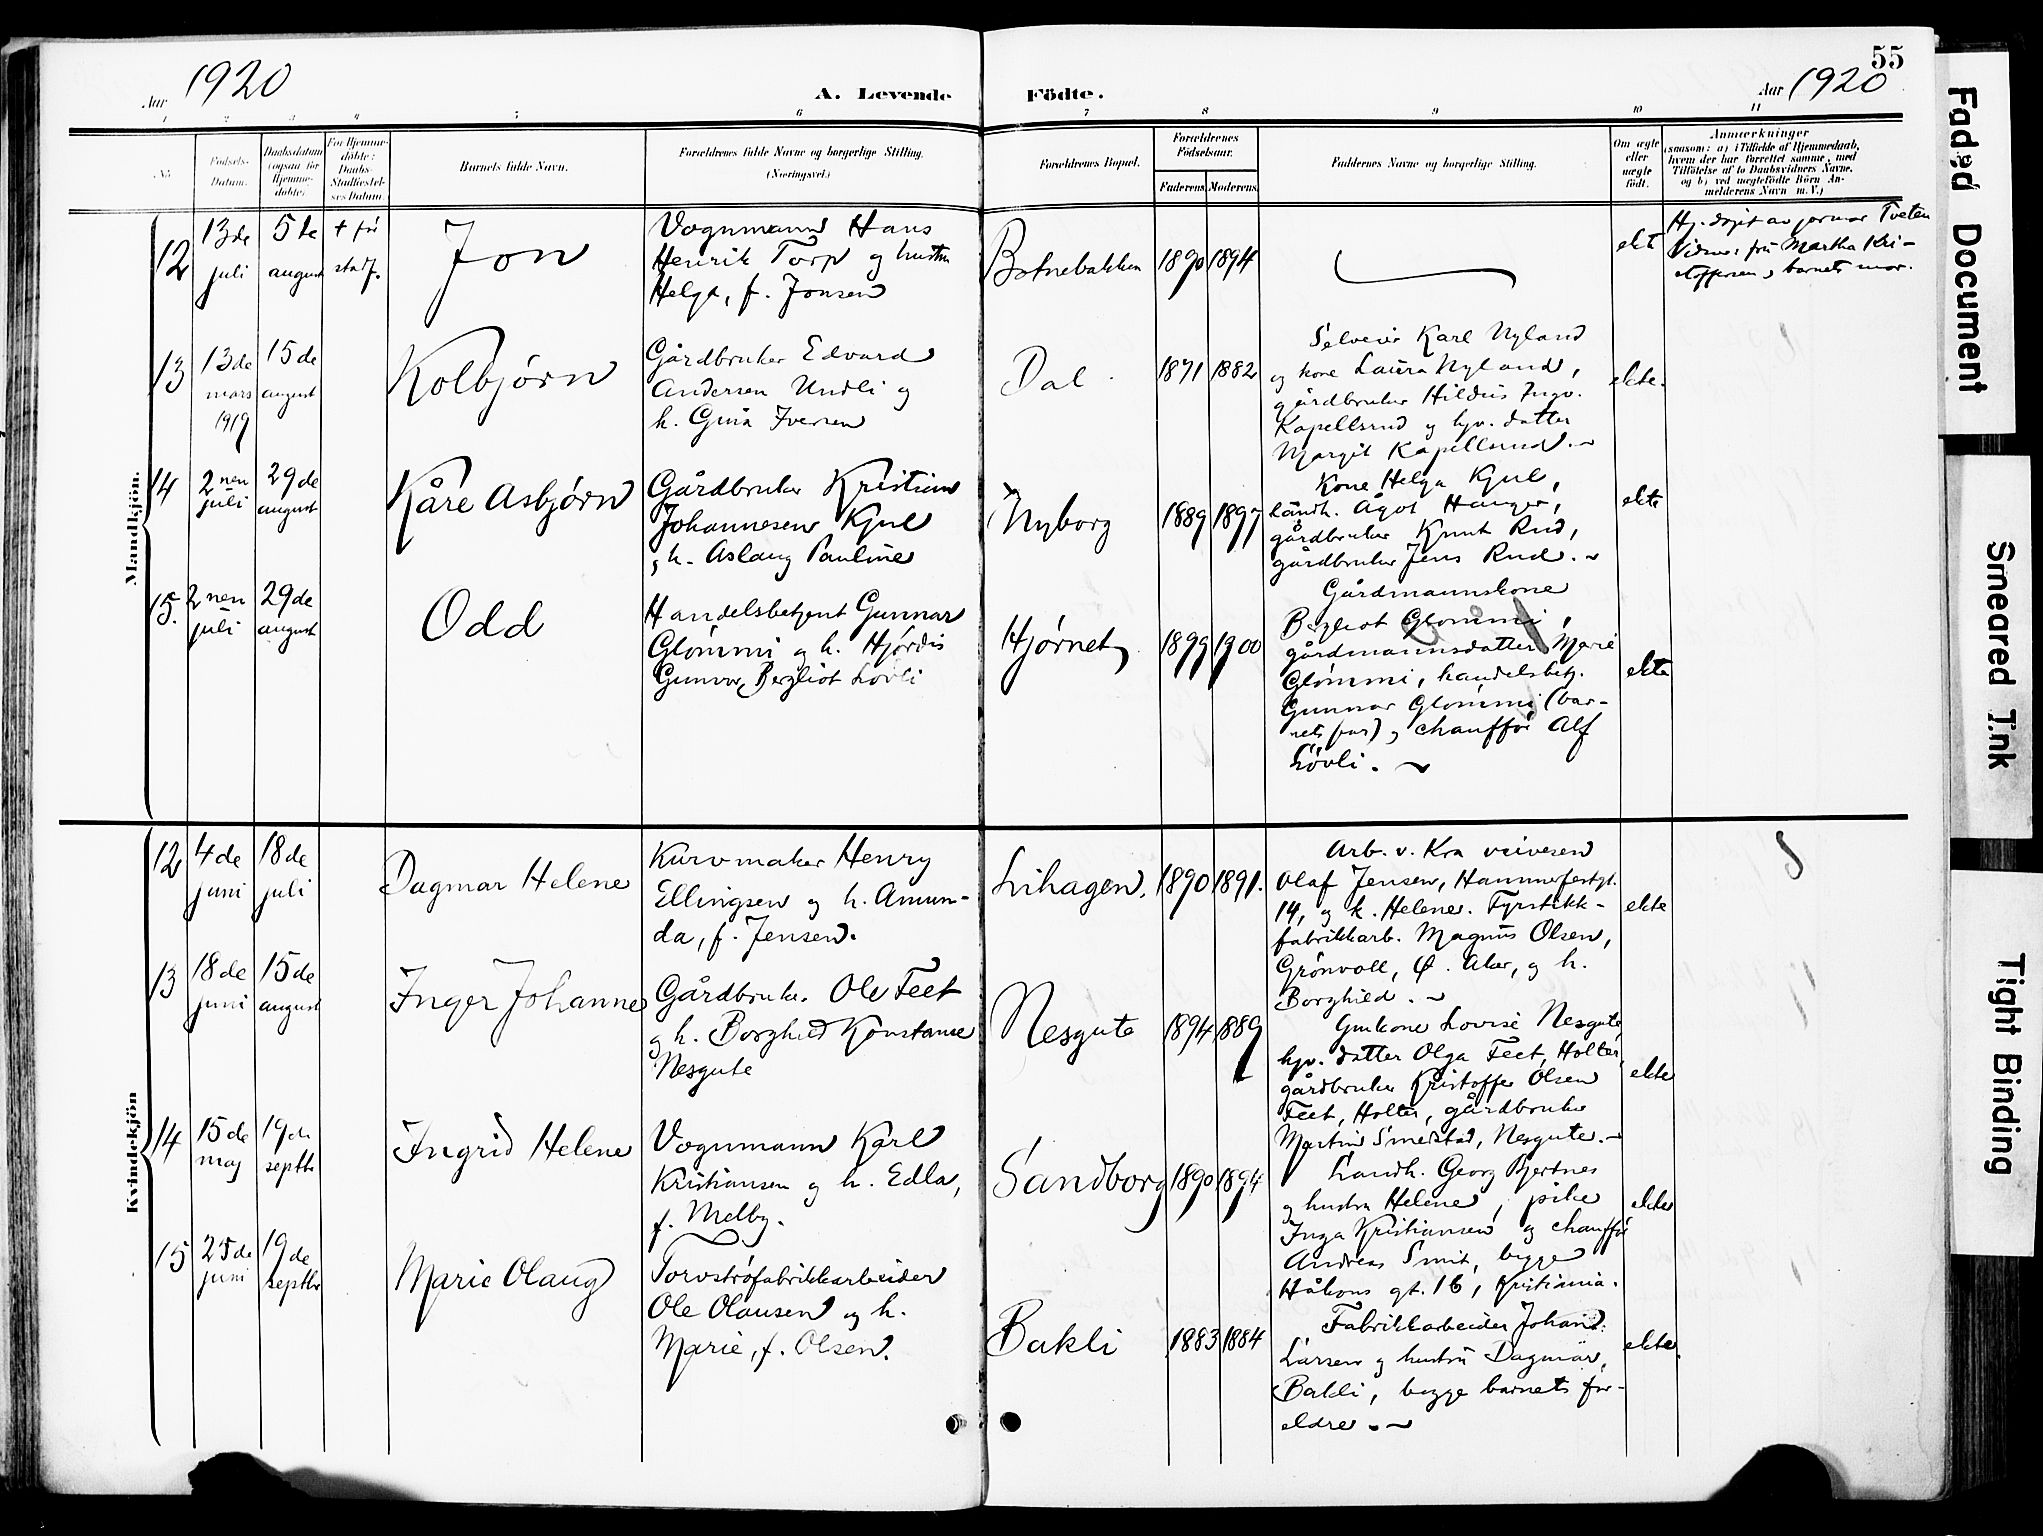 55
Aar 1920
A. Levende Födte.
Aar 1920
1 2 3 4 5 6 7 8 9 10 11
No
Födsels-
Datum.
Daabsdatum
(ogsaa for
Hjemme-
döbte).
For Hjemme-
döbte:
Daabs-
Stadfæstel-
ses Datum.
Barnets fulde Navn.
Forældrenes fulde Navne og borgerlige Stilling.
(Næringsvei.)
Forældrenes Bopæl.
Forældrenes
Födselsaar.
Faderens. Moderens.
Faddernes Navne og borgerlige Stilling.
Om ægte
eller
uægte
født.
Anmærkninger
(saasom: a) i Tilfælde af Hjemmedaab,
hvem der har forrettet samme, med
Tilföielse af to Daabsvidners Navne,
og b) ved uægtefödte Börn An-
melderens Navn m. V.)
Mandkjön.
12
13de
juli
5te
august
+ før
stadf.
Jon
Vognmann Hans
Henrik Torp og hustru
Helga, f. Jonsen
Botnebakken
1890
1894
ekt
Hj. døpt av jormor Tveten
Vidner: fru Martha Kri-
stoffersen, barnets mor.
13
13de
mars
1919
15de
august
Kolbjørn
Gårdbruker Edvard
Andersen Undli og
h. Gina Iversen
Dal
1871
1882
Selveier Karl Nyland
og kone Laura Nyland,
gårdbruker Hildus Ingv.
Kapellsrud og hjv. datter
Margit Kapellsrud.
ekte.
14
2nen
juli
29de
august
Kåre Asbjørn
Gårdbruker Kristian
Johannesen Kjul
og h. Aslaug Pauline
Nyborg
1889
1897
Kone Helga Kjul,
landh. Ågot Hauger,
gårdbruker Knut Rud,
gårdbruker Jens Rud.
ekte
15.
2nen
juli
29de
august
Odd
Handelsbetjent Gunnar
Glömmi og h. Hjørdis
Gunvor Bergliot Lövli
Hjørnet
1899
1900
Gårdmannskone
Bergliot Glömmi,
gårdmannsdatter Marie
Glömmi, handelsbetj.
Gunnar Glömmi (bar-
nets far) og chauffør Alf
Lövli.
ekte
Kvindekjön
12
4de
juni
18de
juli
Dagmar Helene
Kurvmaker Henry
Ellingsen og h. Amun-
da, f. Jensen.
Lihagen.
1890
1891.
Arb. v. Kra veivesen
Olaf Jensen, Hammerfestgt.
14, og k. Helene. Fyrstikk-
fabrikkarb. Magnus Olsen,
Grönvoll, Ø. Aker, og h.
Borghild.
ekte
13
18de
juni
15de
august
Inger Johanne
Gårdbruker Ole Feet
og h. Borghild Konstanse
Nesgute
Nesgute
1894
1889
Gmkone Lovise Nesgute,
hjv. datter Olga Feet, Holter,
gårdbruker Kristoffer Olsen
Feet, Holter, gårdbruker
Martin Smedstad, Nesgute.
ekte
14
15de
maj
19de
septbr
Ingrid Helene
Vognmann Karl
Kristiansen og h. Edla,
f. Melby.
Sandborg
1890
1894
Landh. Georg Bjertnes
og hustru Helene, pike
Inga Kristiansen og chauffør
Andreas Smit, begge
Håkons gt. 16, Kristiania.
ekte
15
25de
juni
19de
septbr
Marie Olaug
Torvströfabrikkarbeider
Ole Olausen og h.
Marie, f. Olsen.
Bakli
1883
1884
Fabrikkarbeider Johan
Larsen og hustru Dagmar,
Bakli, begge barnets for-
eldre.
ekte.
Faded Document
Smeared Ink
Tight Binding